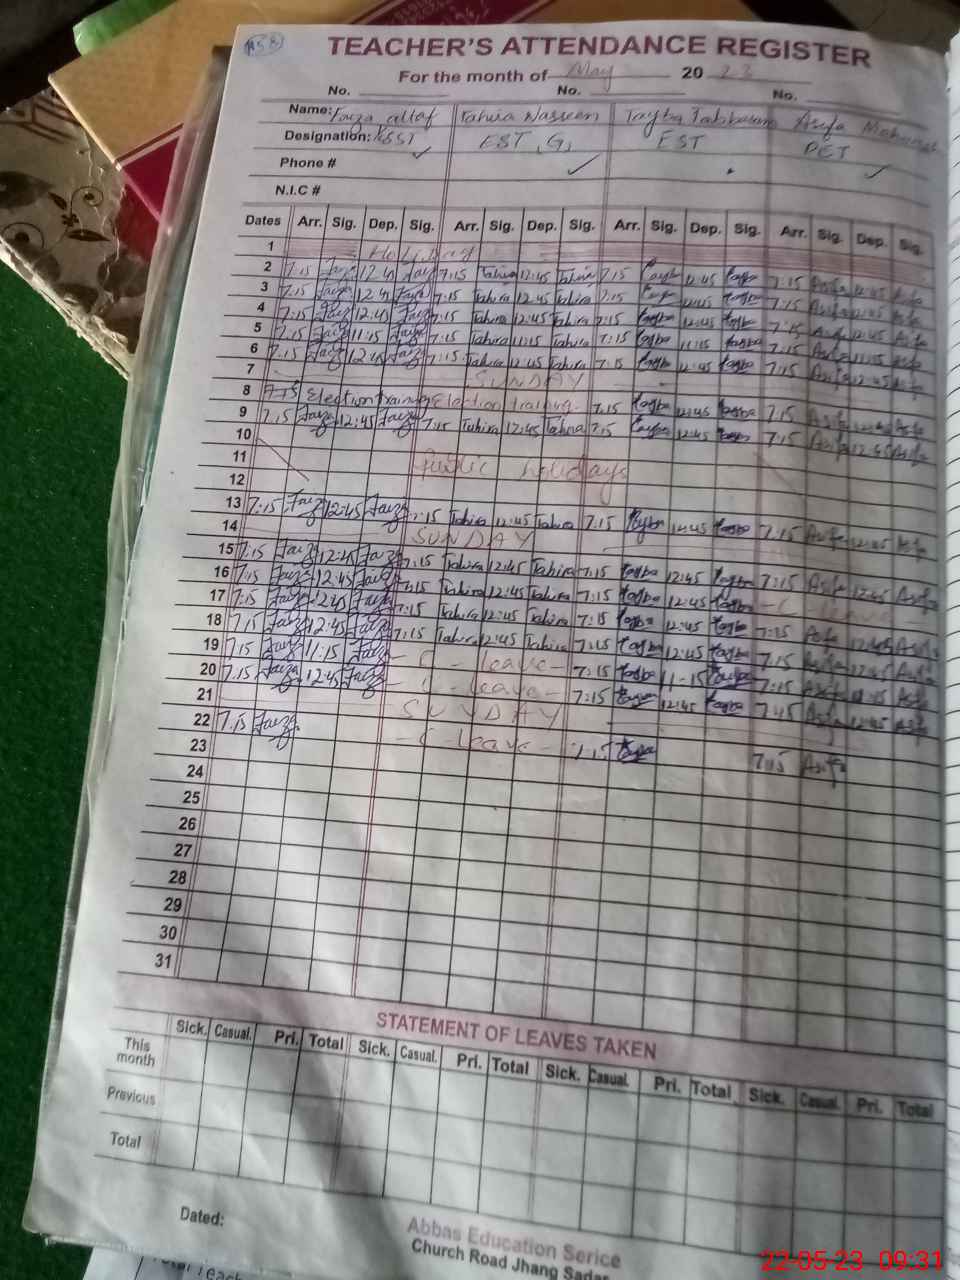 TEACHER'S ATTENDANCE REGISTER
For the month of May 20 23
No. No. No.
Name: Fouza altaf Tahira Naseem Tayba Tabbasum Asifa
Designation: SST EST, G, EST PET
Phone #
N.I.C #
Dates Arr. Sig. Dep. Sig. Arr. Sig. Dep. Sig. Arr. Sig. Dep. Sig. Arr. Sig. Dep. Sig.
1 Holiday
2 7:15 Fauz 12:45 Fauz 7:15 Tahira 12:45 Tahira 7:15 Tayba 12:45 Tayba 7:15 Asifa 12:45 Asifa
3 7:15 Fauz 12:45 Fauz 7:15 Tahira 12:45 Tahira 7:15 Tayba 12:45 Tayba 7:15 Asifa 12:45 Asifa
4 7:15 Fauz 12:45 Fauz 7:15 Tahira 12:45 Tahira 7:15 Tayba 12:45 Tayba 7:15 Asifa 12:45 Asifa
5 7:15 Fauz 11:15 Fauz 7:15 Tahira 11:15 Tahira 7:15 Tayba 11:15 Tayba 7:15 Asifa 11:15 Asifa
6 7:15 Fauz 12:45 Fauz 7:15 Tahira 12:45 Tahira 7:15 Tayba 12:45 Tayba 7:15 Asifa 12:45 Asifa
7 SUNDAY
8 7:15 Election training Election training 7:15 Tayba 12:45 Tayba 7:15 Asifa 12:45 Asifa
9 7:15 Fauz 12:45 Fauz 7:15 Tahira 12:45 Tahira 7:15 Tayba 12:45 Tayba 7:15 Asifa 12:45 Asifa
10
11 Public holidays
12
13 7:15 Fauz 12:45 Fauz 7:15 Tahira 12:45 Tahira 7:15 Tayba 12:45 Tayba 7:15 Asifa 12:45 Asifa
14 SUNDAY
15 7:15 Fauz 12:45 Fauz 7:15 Tahira 12:45 Tahira 7:15 Tayba 12:45 Tayba 7:15 Asifa 12:45 Asifa
16 7:15 Fauz 12:45 Fauz 7:15 Tahira 12:45 Tahira 7:15 Tayba 12:45 Tayba - C - leave
17 7:15 Fauz 12:45 Fauz 7:15 Tahira 12:45 Tahira 7:15 Tayba 12:45 Tayba 7:15 Asifa 12:45 Asifa
18 7:15 Fauz 12:45 Fauz 7:15 Tahira 12:45 Tahira 7:15 Tayba 12:45 Tayba 7:15 Asifa 12:45 Asifa
19 7:15 Fauz 11:15 Fauz - C - leave - 7:15 Tayba 11-15 Tayba 7:15 Asifa 11:15 Asifa
20 7:15 Fauz 12:45 Fauz - C - leave - 7:15 Tayba 12:45 Tayba 7:15 Asifa 12:45 Asifa
21 SUNDAY
22 7:15 Fauz - C - leave - 7:15 Tayba 7:15 Asifa
23
24
25
26
27
28
29
30
31
STATEMENT OF LEAVES TAKEN
Sick. Casual. Pri. Total Sick. Casual. Pri. Total Sick. Casual. Pri. Total Sick. Casual. Pri. Total
This month
Previous
Total
Dated:
Abbas Education Serice
Church Road Jhang Sadar
22-05-23 09:31